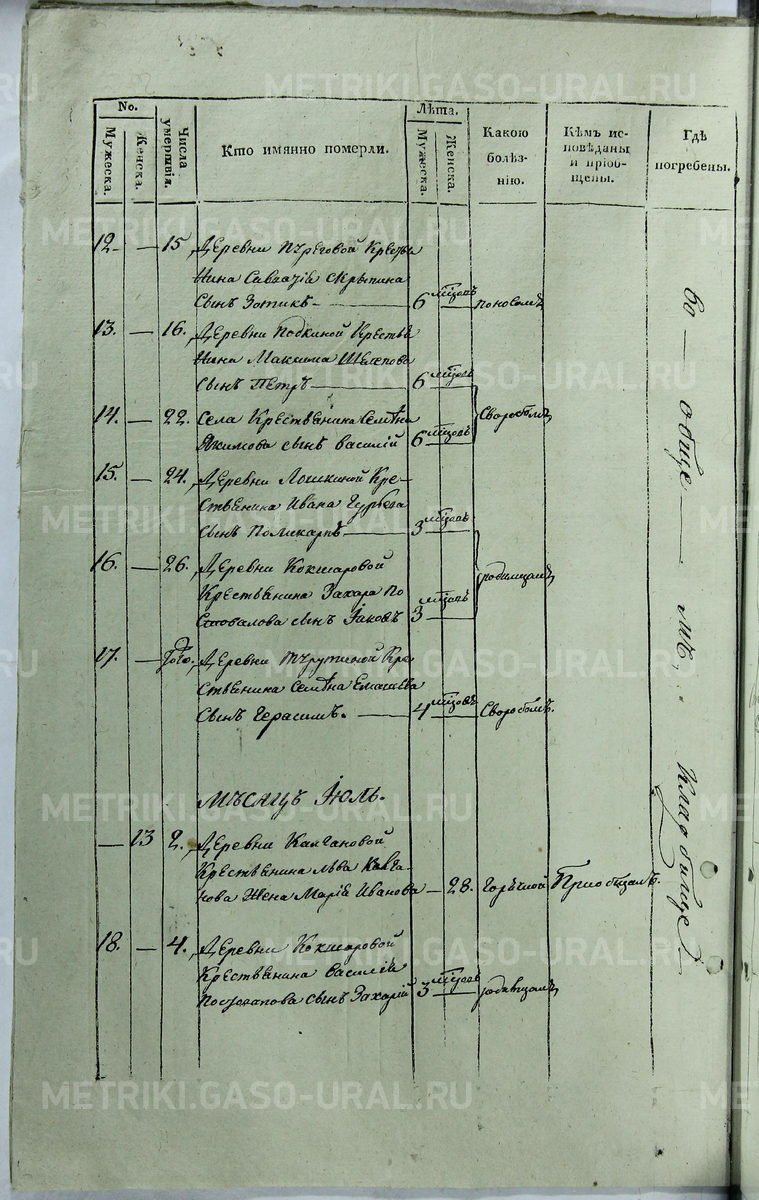 METRIKI.GASO-URAL.RU
No.
Мужеска.
Женска.
Числа умертвія.
Кто имянно померли.
Лѣта.
Мужеска.
Женска.
Какою болѣзнію.
Кѣмъ исповѣданы и пріобщены.
Гдѣ погребены.
12 — 15 Деревни Крестья
нина Савватія Скрыпина
Сынъ Зотикъ — 6 мѣсяцъ поносомъ
13. — 16. Деревни Крестья
нина Максима Шелепова
Сынъ Петръ — 6 мѣсяцъ
14. — 22. Села Крестьянина Семѣна
Якимова сынъ Василій 6 мѣсяцъ
15. — 24. Деревни Лошкиной Кре-
стьянина Ивана Гурьева
Сынъ Поликарпъ — 3 мѣсяцъ
16. — 26. Деревни Кокшаровой
Крестьянина Захара По
стовалова сынъ Іаковъ 3 мѣсяцъ родимцомъ
17. — Деревни Кре
стьянина Семѣна
Сынъ Герасимъ. — 4 мѣсяцъ
Мѣсяцъ Іюль.
— 13 2. Деревни Калгановой
Крестьянина Льва Калга-
нова Жена Марія Иванова — 28. горячкой Приобщалъ.
18. — 4. Деревни Кокшаровой
Крестьянина Василія
сынъ Захарій 3 мѣсяцъ родимцомъ
во — обще — мъ Кладбище